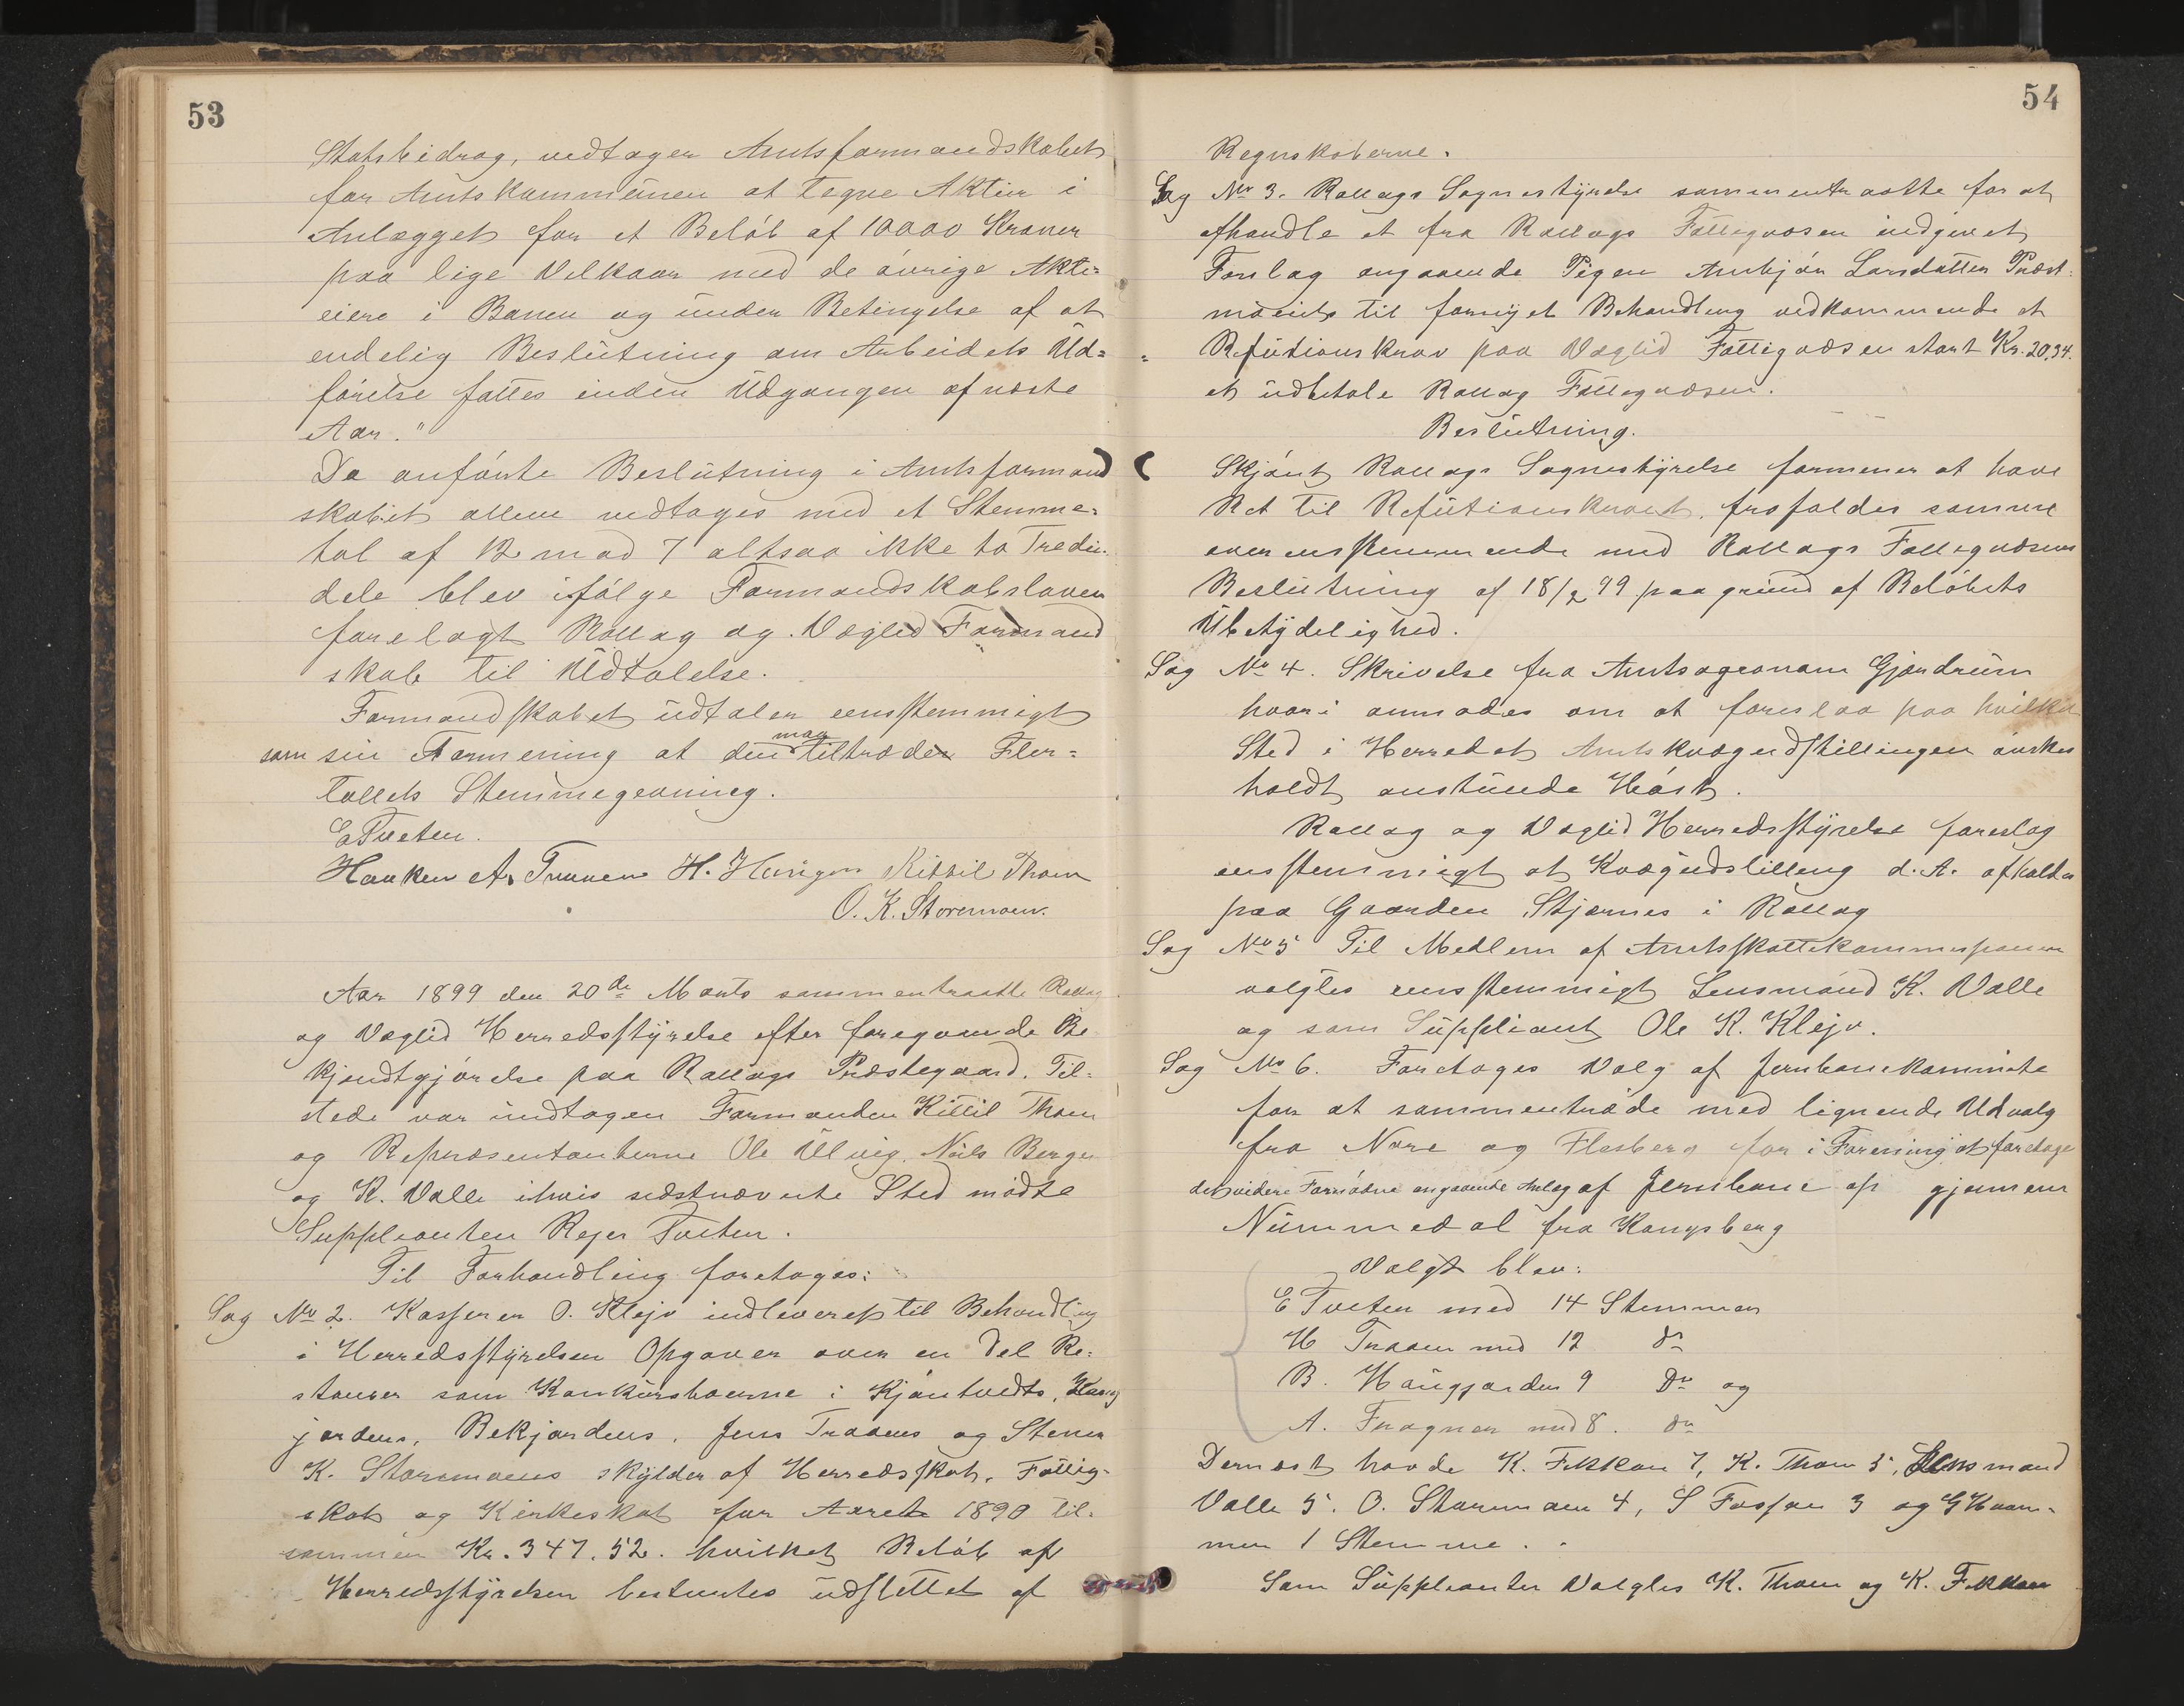 53
Statsbidrag, vedtager Amtsformandskabet
for Amtskommunen at tegne Aktier i
Anlægget for et Beløb af 10000 Kroner
paa lige Vilkaar med de øvrige Aktie=
eiere i Banen og under Betingelse af at
endelig Beslutning om Arbeidets Ud=
førelse fattes inden Udgangen af næste
Aar."
Da anførte Beslutning i Amtsformand
skabet alene vedtoges med et Stemme=
tal af 12 mod 7 altsaa ikke to Tredie=
dele blev ifølge Formandskabsloven
forelagt Rollag og Veglid Formand
skab til Udtalelse.
Formandskabet udtaler eensstemmigt
som sin Formening at den man tiltræder Fler=
tallets Stemmegivning.
E Tveten.
Haaken A. Traaen H. Kittil Thoen
O. K. Storemoen.
Aar 1899 den 20de Marts sammentraadte Rollag
og Veglid Herredsstyrelse efter foregaaende Be
kjendtgjørelse paa Rollags Præstegaard. Til=
stede var undtagen Formanden Kittil Thoen
og Repræsentanterne Ole Ulvig, Nils Bergen
og K. Valle ihvis sidstnævnte Sted mødte
Suppleanten Rejer Tveten.
Til Forhandling foretages:
Sag No 2. Kasserer O. Klejv indleveres til Behandling
i Herredsstyrelsen Opgaver over en Del Re=
stancer som Konkursboerne i Kjøntvedts, Haug
jordens, Bekjordens, Jens Traaens og Stener
K. Storemoens skylder af Herredsskat, Fattig=
skat og Kirkeskat for Aaret 1890 til=
sammen Kr. 347.52. hvilket Beløb af
Herredsstyrelsen besluttes udslettet af
54
Regnskaberne.
Sag No 3. Rollags Sognestyrelse sammentraatte for at
afhandle et fra Rollags Fattigvæsen indgivet
Forslag angaaende Pigen Anbjør Larsdatter Præst=
moeiets til fornyet Behandling vedkommende et
Refutionskrav paa Veglid Fattigvæsen stort Kr. 20,34.
at udbetale Rollag Fattigvæsen.
Beslutning.
Skjønt Rollags Sognestyrelse formener at have
Ret til Refutionskravet, frafaldes samme
overensstemmende med Rollags Fattigvæsens
Beslutning af 18/2 99 paa grund af Beløbets
Ubetydelighed.
Sag No 4. Skrivelse fra Amtsagronom Gjøndrum
hvori anmodes om at foreslaa paa hvilket
Sted i Herredet Amtskvægudstillingen ønskes
holdt anstunde Høst.
Rollag og Veglid Herredsstyrelse foreslog
eensstemmigt at Kvægudstilling d. A. afholdes
paa Gaarden Stjernes i Rollag
Sag No 5 Til Medlem af Amtsskattekommissionen
valgtes eensstemmigt Lensmand K. Valle
og som Suppliant Ole K. Klejv.
Sag No 6. Foretoges Valg af Jernbanekommite
for at sammentræde med lignende Udvalg
fra Nore og Flesberg for i Forening at foretage
det videre Fornødne angaaende Anlæg af Jernbane op gjennem
Nummedal fra Kongsberg
Valgt blev:
E Tveten med 14 Stemmer
H Traaen med 12 do
B. Haugjorden 9 Do og
A. Fragner med 8. do
Dernæst havde K. Fekkan 7, K. Thoen 5, Lensmand
Valle 5. O. Storemoen 4, S Fosson 3 og G Kvam=
men 1 Stemme.
Som Suppleanter Valgtes K. Thoen og K. Fekkan